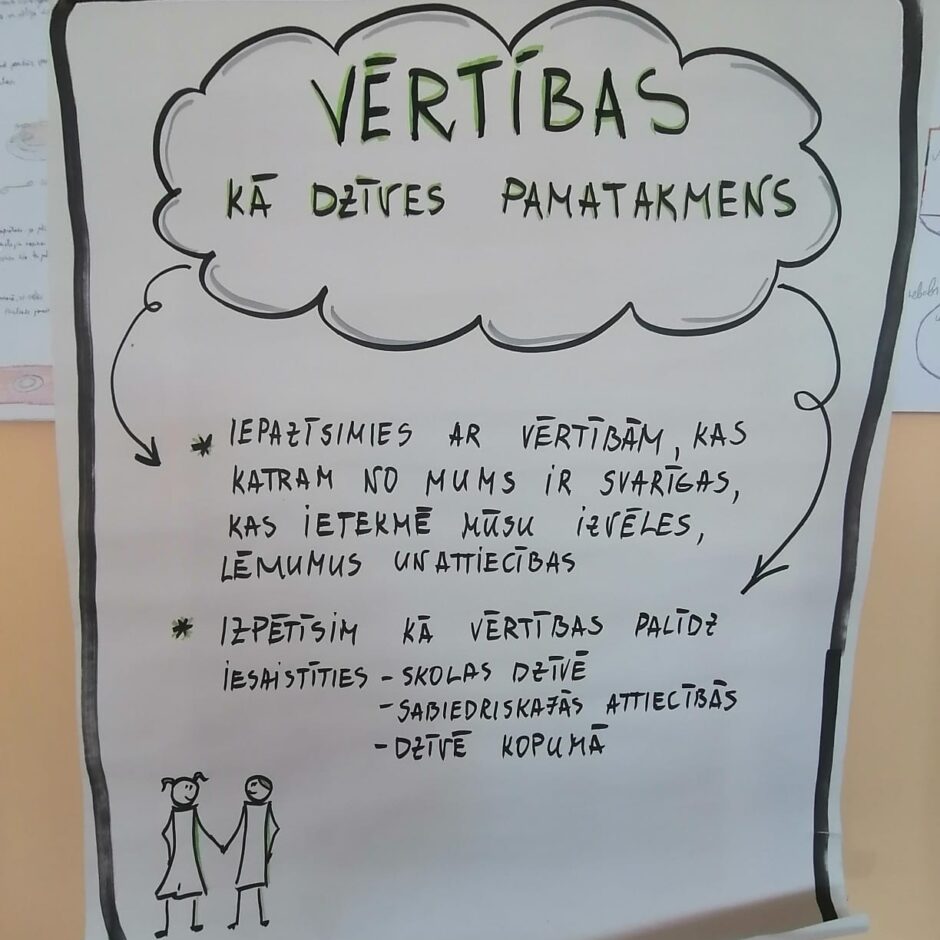 VĒRTĪBAS
KĀ DZĪVES PAMATAKMENS
* IEPAZĪSIMIES AR VĒRTĪBĀM, KAS
KATRAM NO MUMS IR SVARĪGAS,
KAS IETEKMĒ MŪSU IZVĒLES,
LĒMUMUS UN ATTIECĪBAS
* IZPĒTĪSIM KĀ VĒRTĪBAS PALĪDZ
IESAISTĪTIES - SKOLAS DZĪVĒ
- SABIEDRISKAJĀS ATTIECĪBĀS
- DZĪVĒ KOPUMĀ